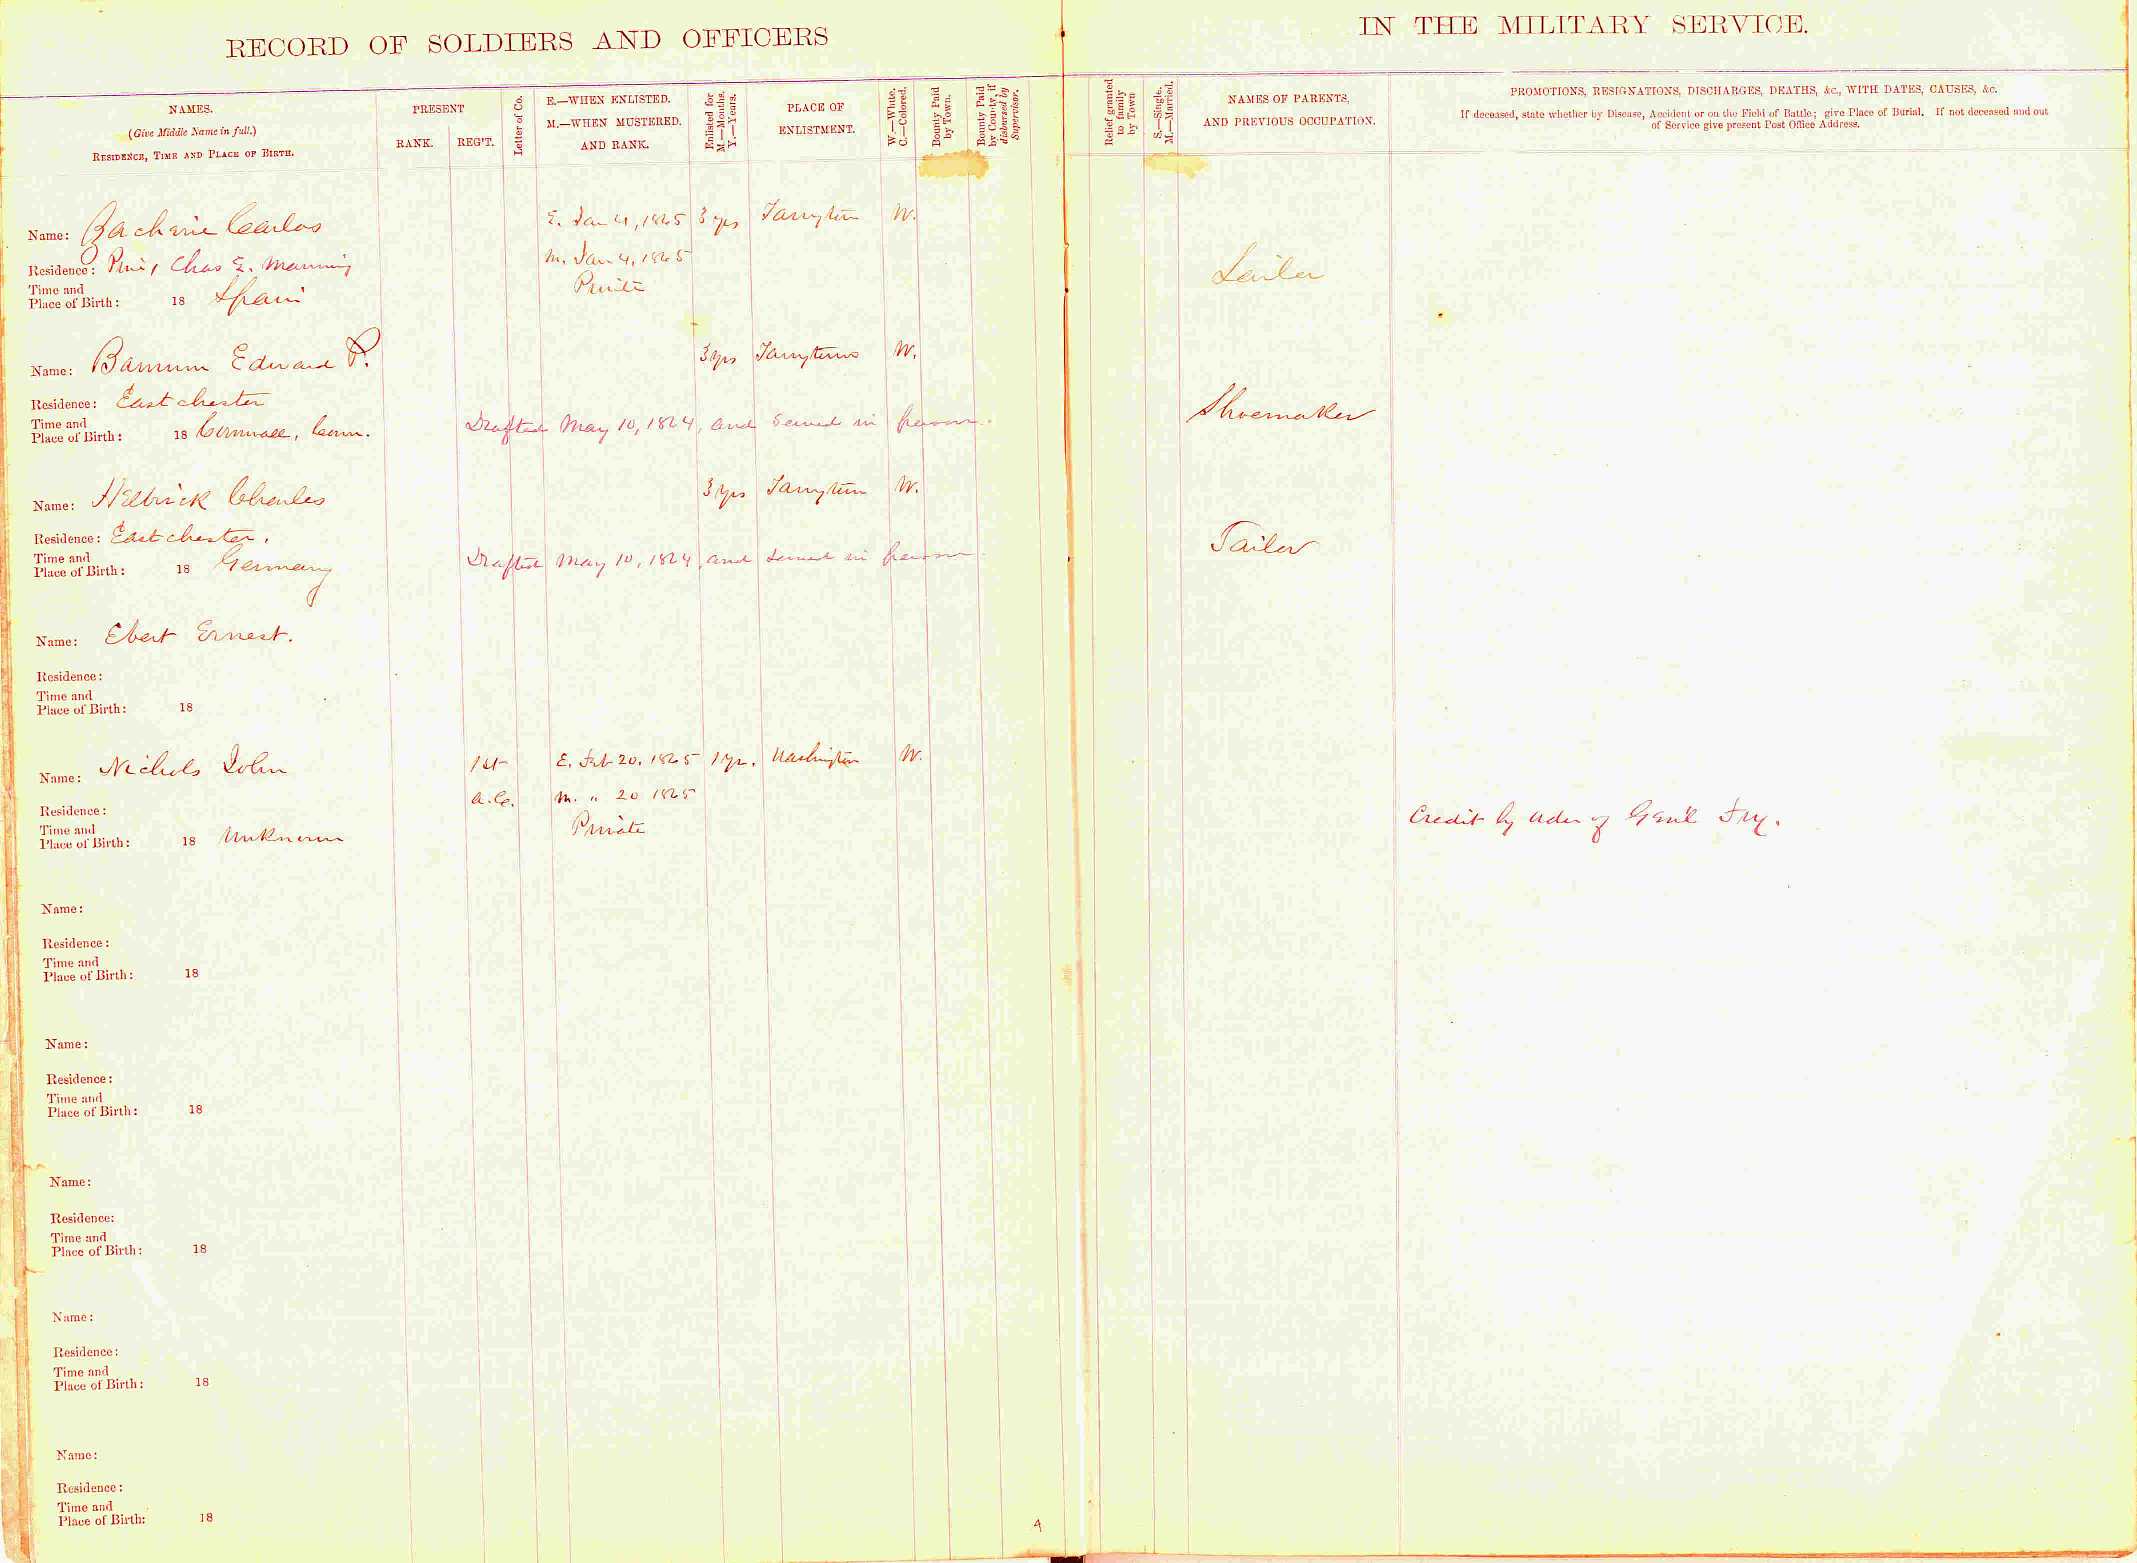 RECORD OF SOLDIERS AND OFFICERS
IN THE MILITARY SERVICE.
NAMES.
(Give Middle Name in full.)
RESIDENCE, TIME AND PLACE OF BIRTH.
PRESENT
RANK. REG'T.
Letter of Co.
E.—WHEN ENLISTED.
M.—WHEN MUSTERED.
AND RANK.
Enlisted for
M.—Months.
Y.—Years.
PLACE OF
ENLISTMENT.
W.—White.
C.—Colored.
Bounty Paid
by Town.
Bounty Paid
by County, if
disbursed by
Supervisor.
Relief granted
to family
by Town
S.—Single.
M.—Married.
NAMES OF PARENTS,
AND PREVIOUS OCCUPATION.
PROMOTIONS, RESIGNATIONS, DISCHARGES, DEATHS, &c., WITH DATES, CAUSES, &c.
If deceased, state whether by Disease, Accident or on the Field of Battle; give Place of Burial. If not deceased and out
of Service give present Post Office Address.
Name: Zacharie Carlos E. Jan 4, 1865 3 yrs Tarrytown W.
Residence: Prin, Chas E. Manning M. Jan. 4, 1865
Time and
Place of Birth: 18 Spain Private
Name: Barnum Edward P. 3 yrs Tarrytown W.
Residence: Eastchester Shoemaker
Time and
Place of Birth: 18 Cornwall, Conn. Drafted May 10, 1864, and served in person.
Name: Charles 3 yrs Tarrytown W.
Residence: Eastchester, Tailor
Time and
Place of Birth: 18 Germany Drafted May 10, 1864, and served in person.
Name: Ebert Ernest.
Residence:
Time and
Place of Birth: 18
Name: Nichols John 1st E. Feb 20, 1865 1 yr. Washington W.
Residence: a.C. M. " 20 1865
Time and
Place of Birth: 18 Unknown Private Credit by order of Gen'l Fry.
Name:
Residence:
Time and
Place of Birth: 18
Name:
Residence:
Time and
Place of Birth: 18
Name:
Residence:
Time and
Place of Birth: 18
Name:
Residence:
Time and
Place of Birth: 18
Name:
Residence:
Time and
Place of Birth: 18
4